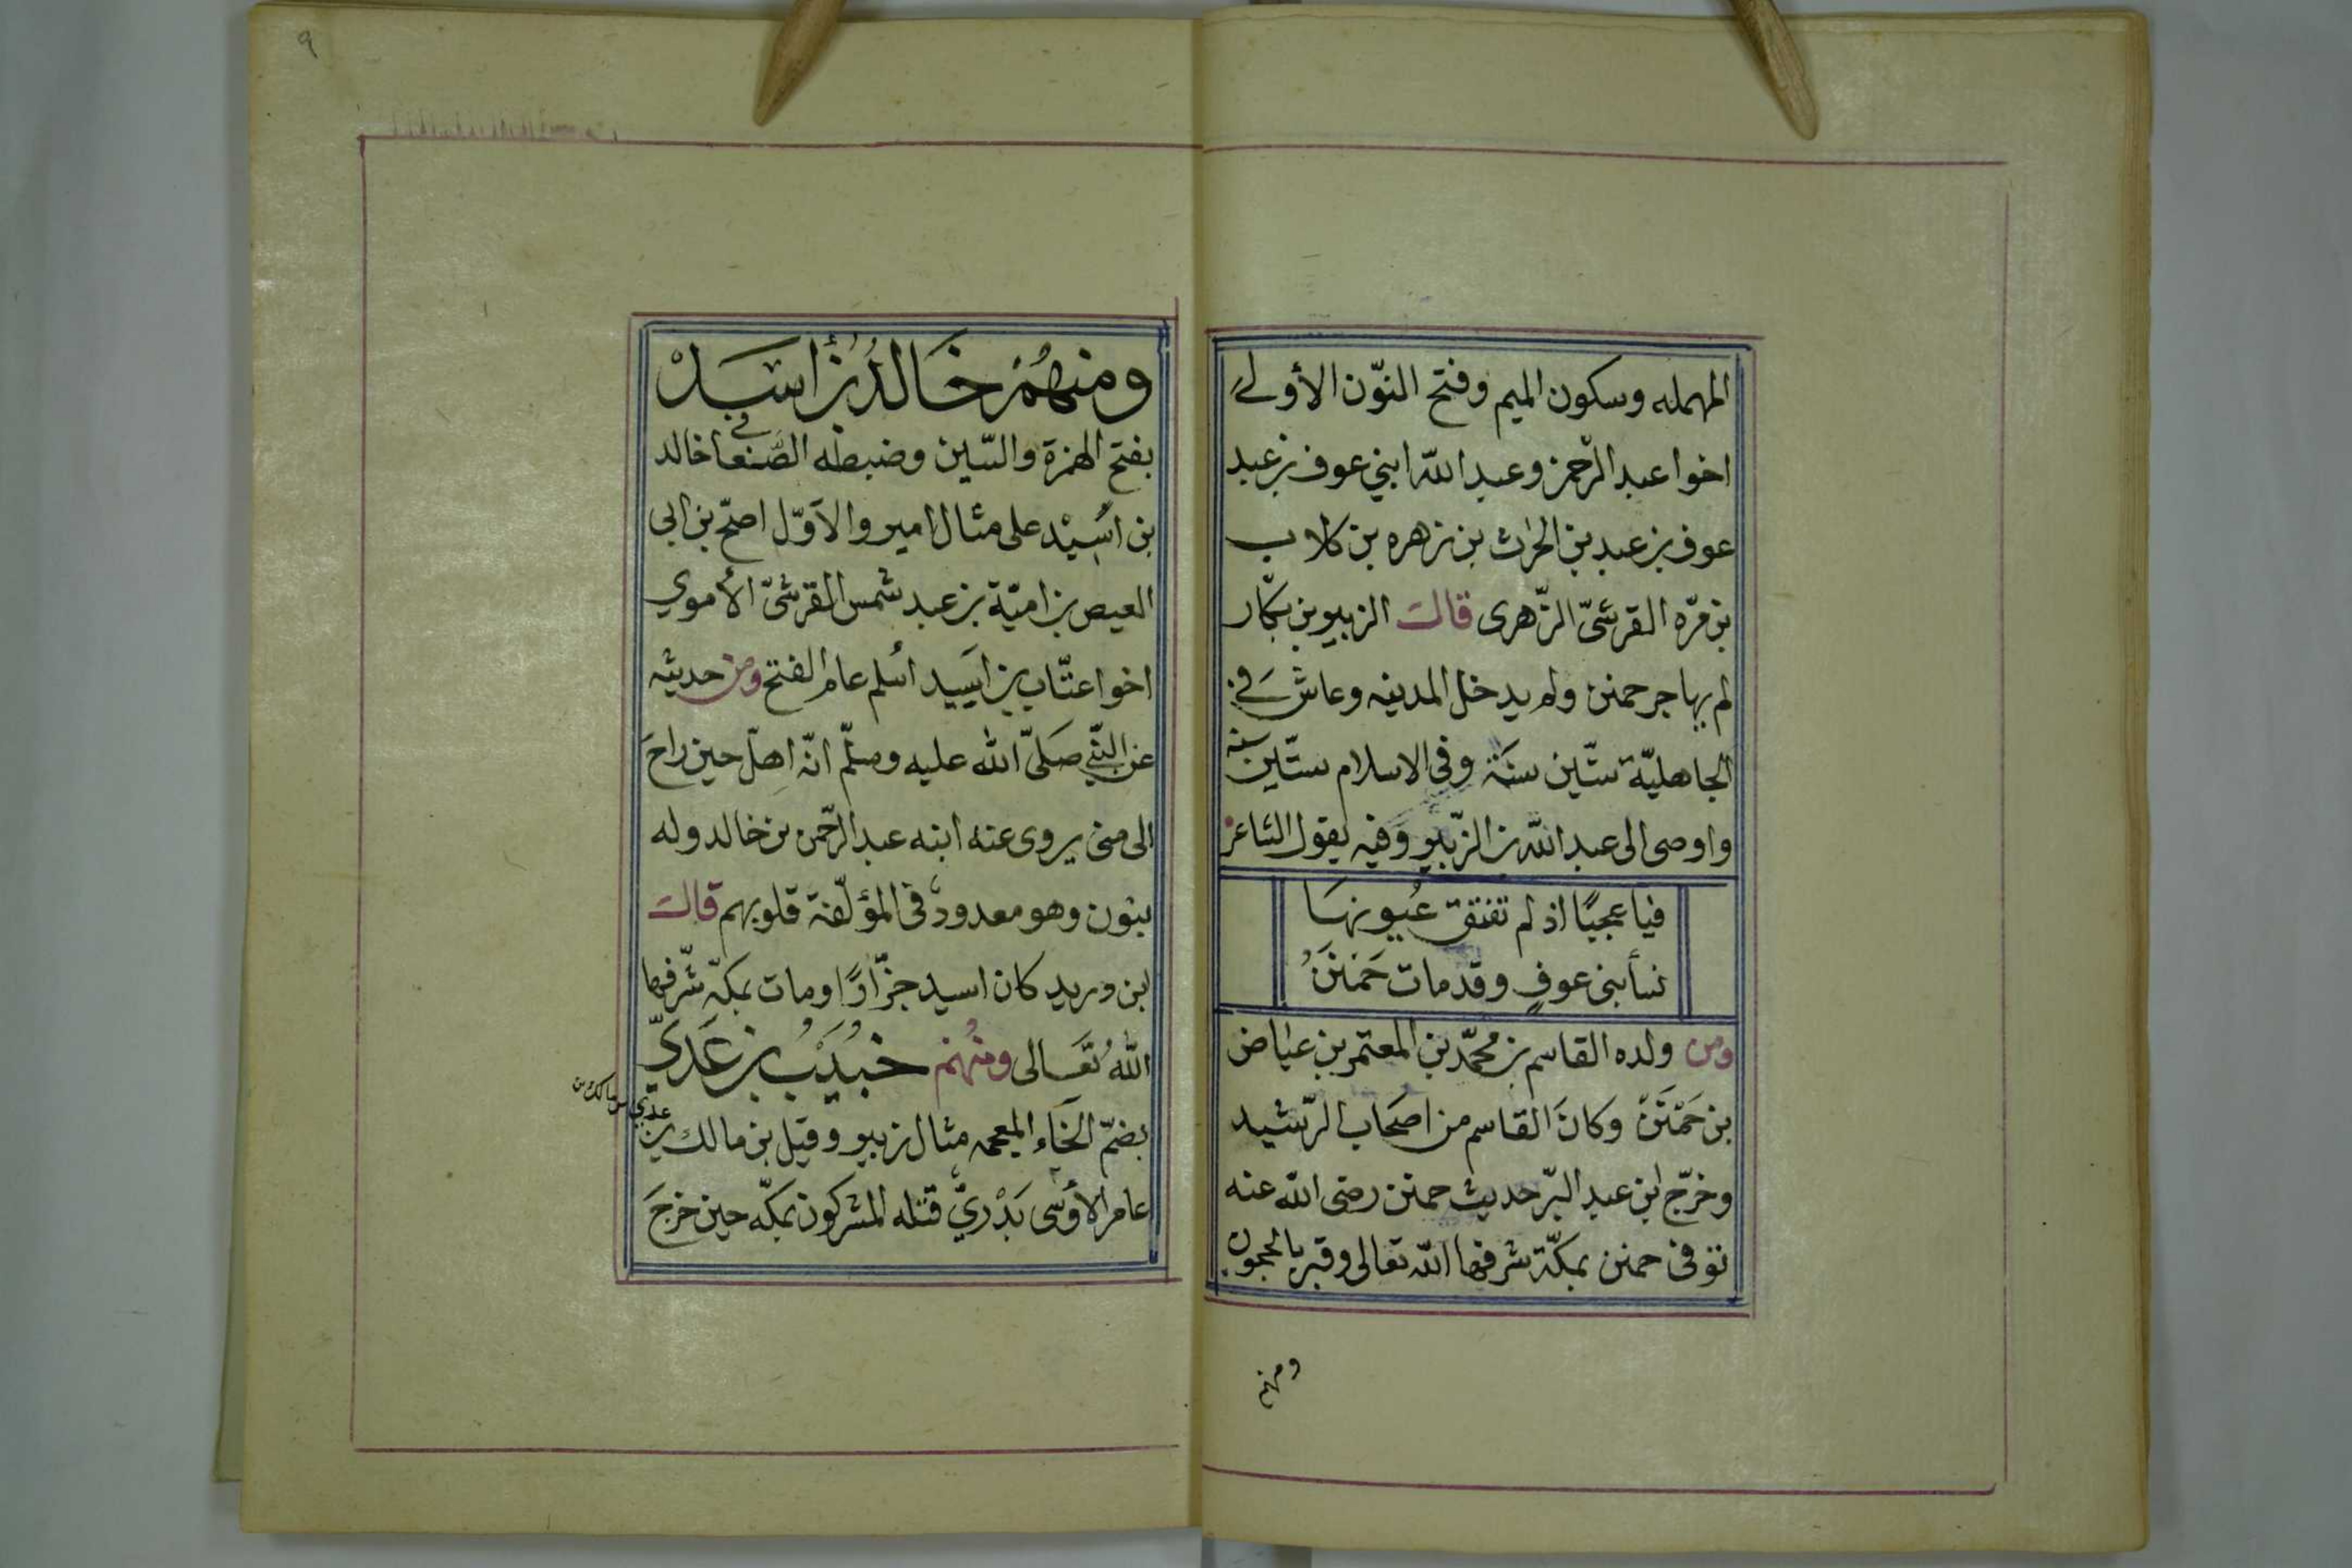 المهمله وسكون الميم وفتح النّون الأولى
اخوا عبد الرّحمن وعبد الله ابني عوف بن عبد
عوف بن عبد بن الحٰرث بن زهره بن كلاب
بن مرّه القرشىّ الزّهرى قالت الزبير بن بكّار
لم يهاجر حمنن ولم يدخل المدينه وعاش فى
الجاهليّة ستّين سنَة وفى الاسلام ستّين سنة
واوصى الى عبد الله بن الزّبير وفيه يقول الشاعر
فيا عجبًا اذ لم تفتق عُيونهَا
نسأ بنى عوفٍ وقد مات حَمننُ
ومن ولده القاسم بن محمّد بن المعتمر بن عيٰاض
بن حَمْنَنْ وكانَ القاسم من اصحَاب الرّشيد
وخرّج ابن عبد البرّ حديث حمنن رضى الله عنه
توفى حمنن بمكّة شرفها الله تعالى وقبر بالحجون
ومنهم
٩
ومنهُمْ خَالدُ بنُ أسَيَدْ
بفتح الهمزة والسّين وضبطه الصَّنعا فى خالد
بن اسِيْد على مثال امير والاَوّل اصحّ بن ابى
العيص بن اميّة بن عبد شمس القرشىّ الأموي
اخوا عتّاب بن اَسَيد أسلم عام الفتح ومن حديثه
عن النّبي صَلىّ الله عليه وسلّم انّه اهلّ حين راحَ
الى منى يروى عنه ابنه عبد الرّحمن بن خالد وله
بنون وهو معدودٌ فى المؤلّفة قلوبهم قالت
ابن دريد كان اسيد جزّارًا ومات بمكّة شرّفها
اللّهُ تَعَالى ومنهُم خُبَيْبُ بن عَدِيّ
بضمّ الخَاء المعجمه مثال زبير وقيل بن مالك بن
عدي بن مالك بن
عامر الأوسى بَدْريٌ قتله المشركون بمكّه حين خرجَ